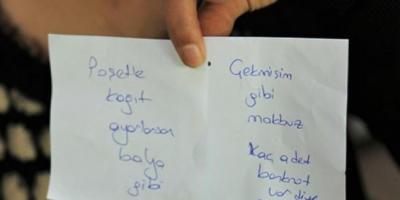 Poşetle
kağıt
ayarlarsan
balya
gibi
Çekmişim
gibi
makbuz
Kaç adet
banknot
var diye